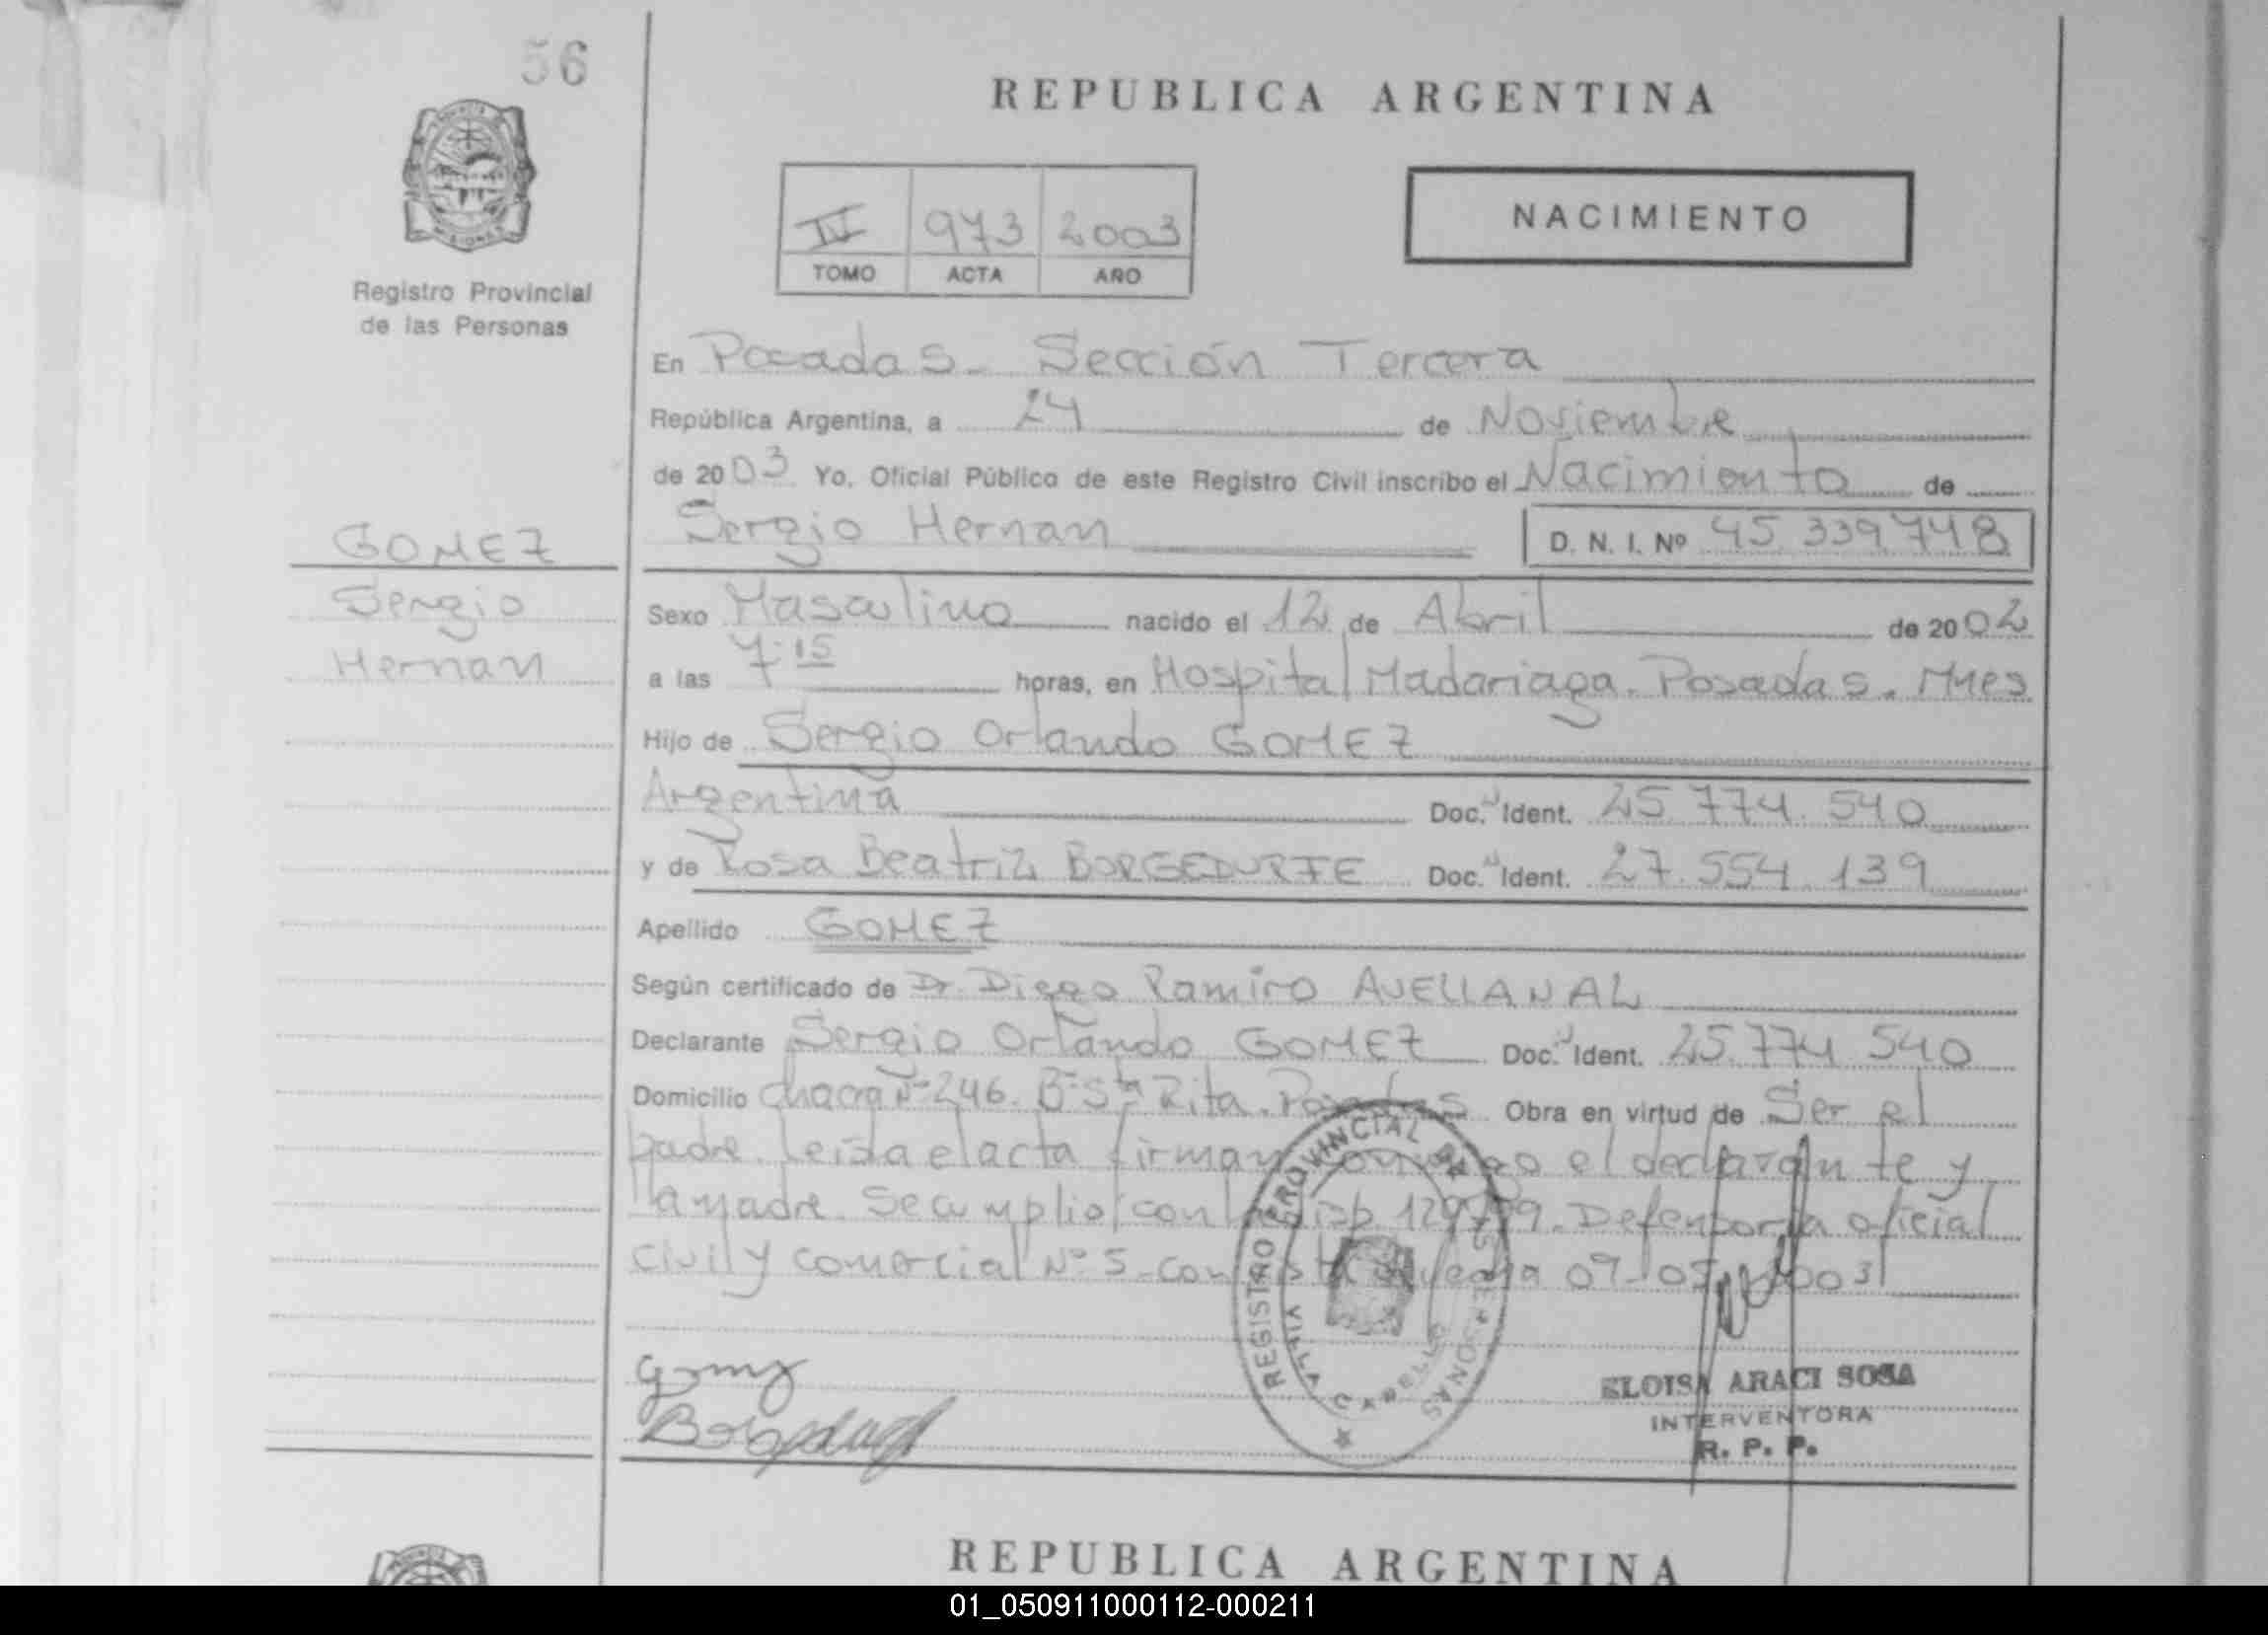 56
REPUBLICA ARGENTINA
IV 973 2003
TOMO ACTA AÑO
NACIMIENTO
Registro Provincial
de las Personas
En Posadas - Sección Tercera
República Argentina, a 24 de Noviembre
de 2003 Yo, Oficial Público de este Registro Civil inscribo el Nacimiento de
Sergio Hernan D. N. I. Nº 45.339.748
GOMEZ
Sergio
Hernan
Sexo Masculino nacido el 12 de Abril de 2002
a las 7:15 horas, en Hospital Madariaga. Posadas. Mnes
Hijo de Sergio Orlando GOMEZ
Argentina Doc. Ident. 25.774.540
y de Rosa Beatriz Doc. Ident. 27.554.139
Apellido GOMEZ
Según certificado de Dr. Diego Ramiro AVELLANAL
Declarante Sergio Orlando GOMEZ Doc. Ident. 25.774.540
Domicilio Chacra Nº 246. Bº Sta Rita. Posadas Obra en virtud de Ser el
padre. Leída el acta firman conmigo el declarante y
la madre. Se cumplio con Disp. 129/99. Defensoria oficial
Civil y Comercial Nº 5. 2003
REGISTRO PROVINCIAL DE LAS PERSONAS
VILLA CABELLO
ELOISA ARACI SOSA
INTERVENTORA
R. P. P.
REPUBLICA ARGENTINA
01_050911000112-000211